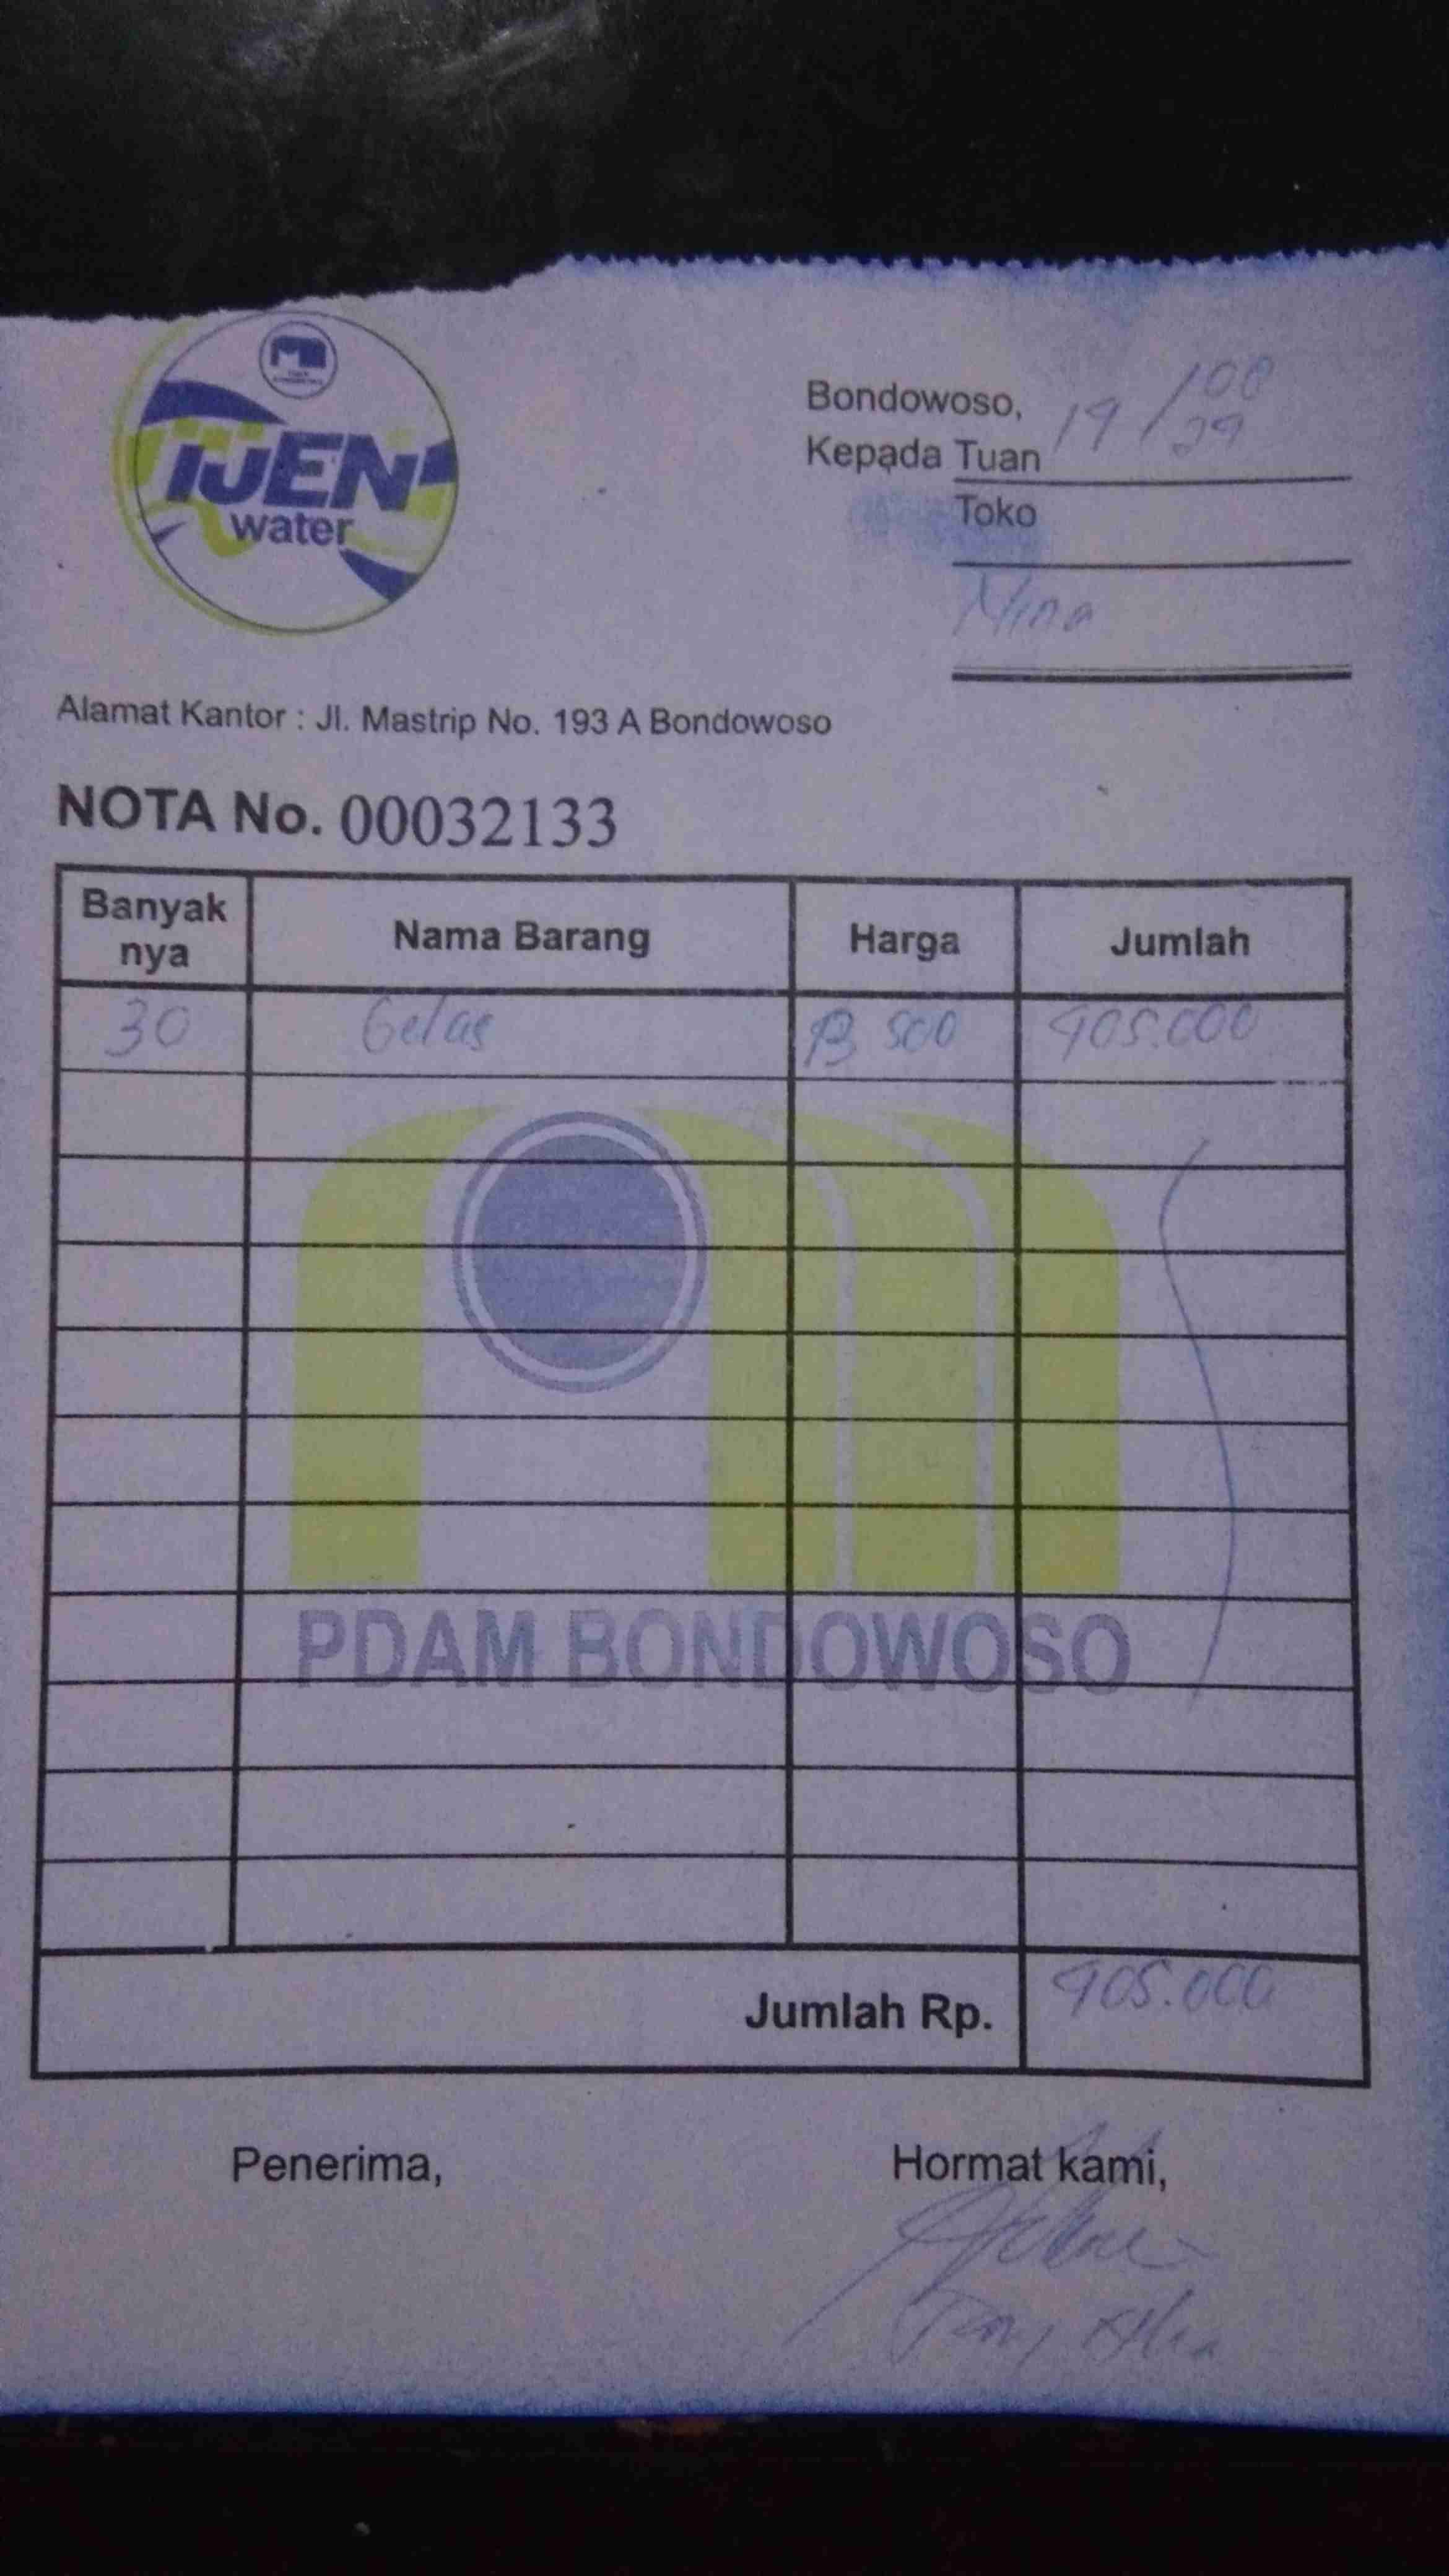 IJEN
water
Bondowoso, 19 /
Kepada Tuan
Toko
Nina
Alamat Kantor : Jl. Mastrip No. 193 A Bondowoso
NOTA No. 00032133
Banyak nya Nama Barang Harga Jumlah
30 Gelas 13 500 405.000
PDAM BONDOWOSO
Jumlah Rp. 405.000
Penerima, Hormat kami,